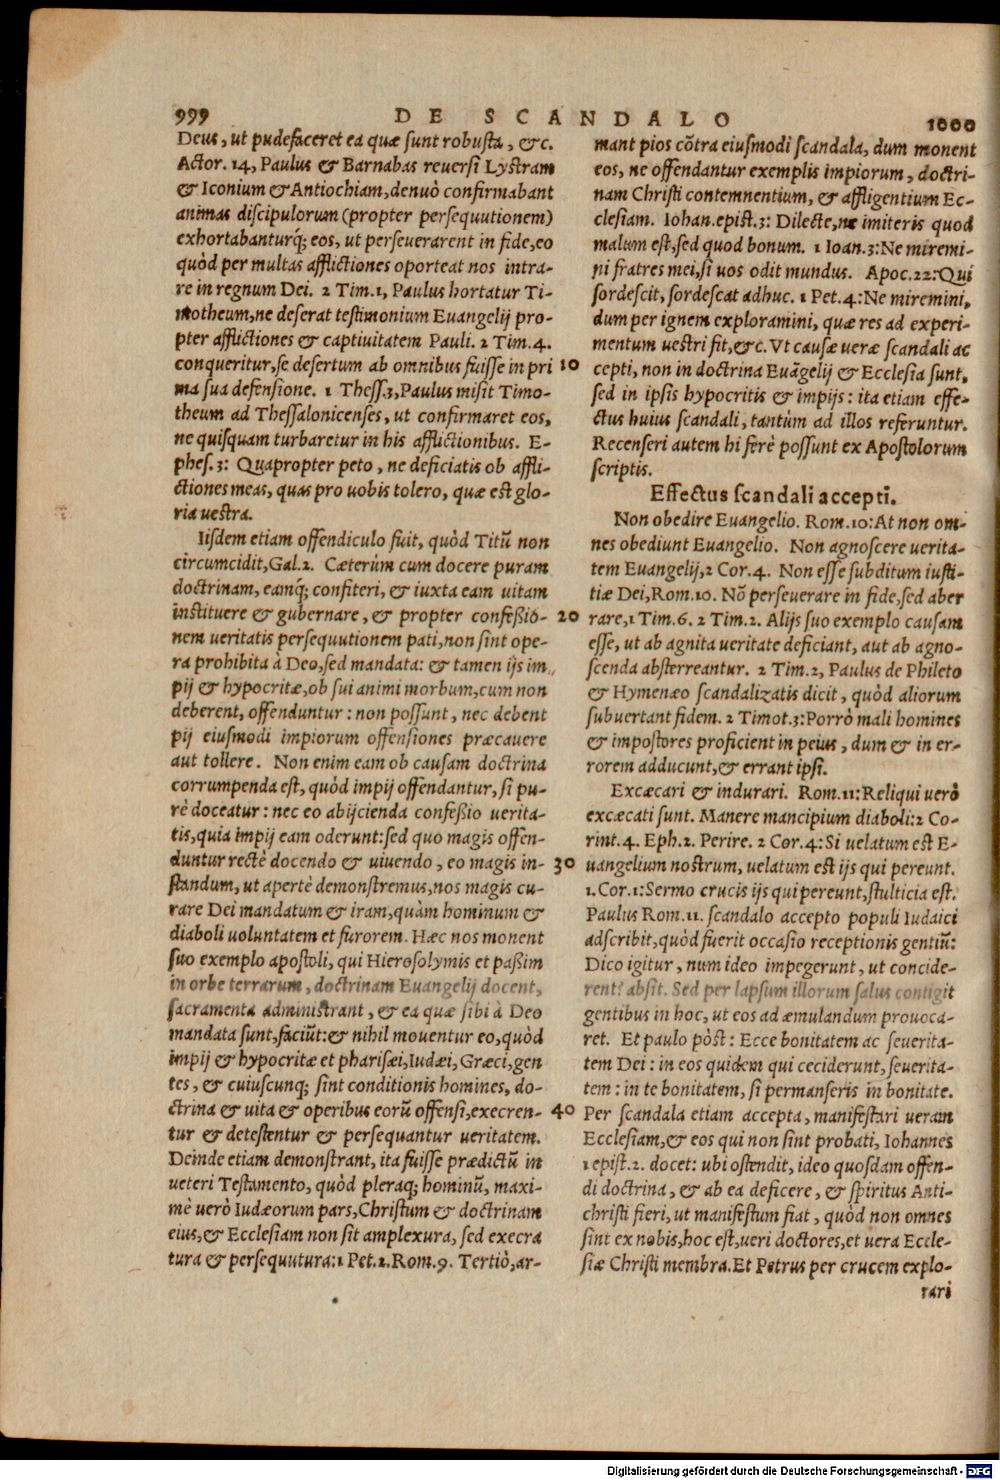 999
DE SCANDALO
1000
Deus, ut pudefaceret ea quæ sunt robusta, &c.
Actor. 14, Paulus & Barnabas reuersi Lystram
& Iconium & Antiochiam, denuò confirmabant
animas discipulorum (propter persequutionem)
exhortabanturq́; eos, ut perseuerarent in fide, eo
quòd per multas afflictiones oporteat nos intra-
re in regnum Dei. 2 Tim. 1, Paulus hortatur Ti-
motheum, ne deserat testimonium Euangelij pro-
pter afflictiones & captiuitatem Pauli. 2 Tim. 4.
conqueritur, se desertum ab omnibus fuisse in pri
ma sua defensione. 1 Thess. 3, Paulus misit Timo-
theum ad Thessalonicenses, ut confirmaret eos,
ne quisquam turbaretur in his afflictionibus. E-
phes. 3: Quapropter peto, ne deficiatis ob affli-
ctiones meas, quas pro uobis tolero, quæ est glo-
ria uestra.
Iisdem etiam offendiculo fuit, quòd Titũ non
circumcidit, Gal. 2. Cæterùm cum docere puram
doctrinam, eamq́; confiteri, & iuxta eam uitam
instituere & gubernare, & propter confeßio-
nem ueritatis persequutionem pati, non sint ope-
ra prohibita à Deo, sed mandata: & tamen ijs im
pij & hypocritæ, ob sui animi morbum, cum non
deberent, offenduntur: non possunt, nec debent
pij eiusmodi impiorum offensiones præcauere
aut tollere. Non enim eam ob causam doctrina
corrumpenda est, quòd impij offendantur, si pu-
rè doceatur: nec eo abijcienda confeßio uerita-
tis, quia impij eam oderunt: sed quo magis offen-
duntur rectè docendo & uiuendo, eo magis in-
standum, ut apertè demonstremus, nos magis cu-
rare Dei mandatum & iram, quàm hominum &
diaboli uoluntatem et furorem. Hæc nos monent
suo exemplo apostoli, qui Hierosolymis et paßim
in orbe terrarum, doctrinam Euangelij docent,
sacramenta administrant, & ea quæ sibi à Deo
mandata sunt, faciũt: & nihil mouentur eo, quòd
impij & hypocritæ et pharisæi, Iudæi, Græci, gen
tes, & cuiuscunq; sint conditionis homines, do-
ctrina & uita & operibus eorũ offensi, execren-
tur & detestentur & persequantur ueritatem.
Deinde etiam demonstrant, ita fuisse prædictũ in
ueteri Testamento, quòd pleraq; hominũ, maxi-
mè uerò Iudæorum pars, Christum & doctrinam
eius, & Ecclesiam non sit amplexura, sed execra
tura & persequutura: 1 Pet. 2. Rom. 9. Tertiò, ar-
10
20
30
40
mant pios cõtra eiusmodi scandala, dum monent
eos, ne offendantur exemplis impiorum, doctri-
nam Christi contemnentium, & affligentium Ec-
clesiam. Iohan. epist. 3: Dilecte, ne imiteris quod
malum est, sed quod bonum. 1 Ioan. 3: Ne miremi-
ni fratres mei, si uos odit mundus. Apoc. 22: Qui
sordescit, sordescat adhuc. 1 Pet. 4: Ne miremini,
dum per ignem exploramini, quæ res ad experi-
mentum uestri fit, &c. Vt causæ ueræ scandali ac
cepti, non in doctrina Euãgelij & Ecclesia sunt,
sed in ipsis hypocritis & impijs: ita etiam effe-
ctus huius scandali, tantùm ad illos referuntur.
Recenseri autem hi ferè possunt ex Apostolorum
scriptis.
Effectus scandali accepti.
Non obedire Euangelio. Rom. 10: At non om-
nes obediunt Euangelio. Non agnoscere uerita-
tem Euangelij, 2 Cor. 4. Non esse subditum iusti-
tiæ Dei, Rom. 10. Nõ perseuerare in fide, sed aber
rare, 1 Tim. 6. 2 Tim. 2. Alijs suo exemplo causam
esse, ut ab agnita ueritate deficiant, aut ab agno-
scenda absterreantur. 2 Tim. 2, Paulus de Phileto
& Hymenæo scandalizatis dicit, quòd aliorum
subuertant fidem. 2 Timot. 3: Porrò mali homines
& impostores proficient in peius, dum & in er-
rorem adducunt, & errant ipsi.
Excæcari & indurari. Rom. 11: Reliqui uerò
excæcati sunt. Manere mancipium diaboli: 2 Co-
rint. 4. Eph. 2. Perire. 2 Cor. 4: Si uelatum est E-
uangelium nostrum, uelatum est ijs qui pereunt.
1. Cor. 1: Sermo crucis ijs qui pereunt, stulticia est.
Paulus Rom. 11. scandalo accepto populi Iudaici
adscribit, quòd fuerit occasio receptionis gentiũ:
Dico igitur, num ideo impegerunt, ut concide-
rent? absit. Sed per lapsum illorum salus contigit
gentibus in hoc, ut eos ad æmulandum prouoca-
ret. Et paulo pòst: Ecce bonitatem ac seuerita-
tem Dei: in eos quidem qui ceciderunt, seuerita-
tem: in te bonitatem, si permanseris in bonitate.
Per scandala etiam accepta, manifestari ueram
Ecclesiam, & eos qui non sint probati, Iohannes
1 epist. 2. docet: ubi ostendit, ideo quosdam offen-
di doctrina, & ab ea deficere, & spiritus Anti-
christi fieri, ut manifestum fiat, quòd non omnes
sint ex nobis, hoc est, ueri doctores, et uera Eccle-
siæ Christi membra. Et Petrus per crucem explo-
rari
Digitalisierung gefördert durch die Deutsche Forschungsgemeinschaft - DFG